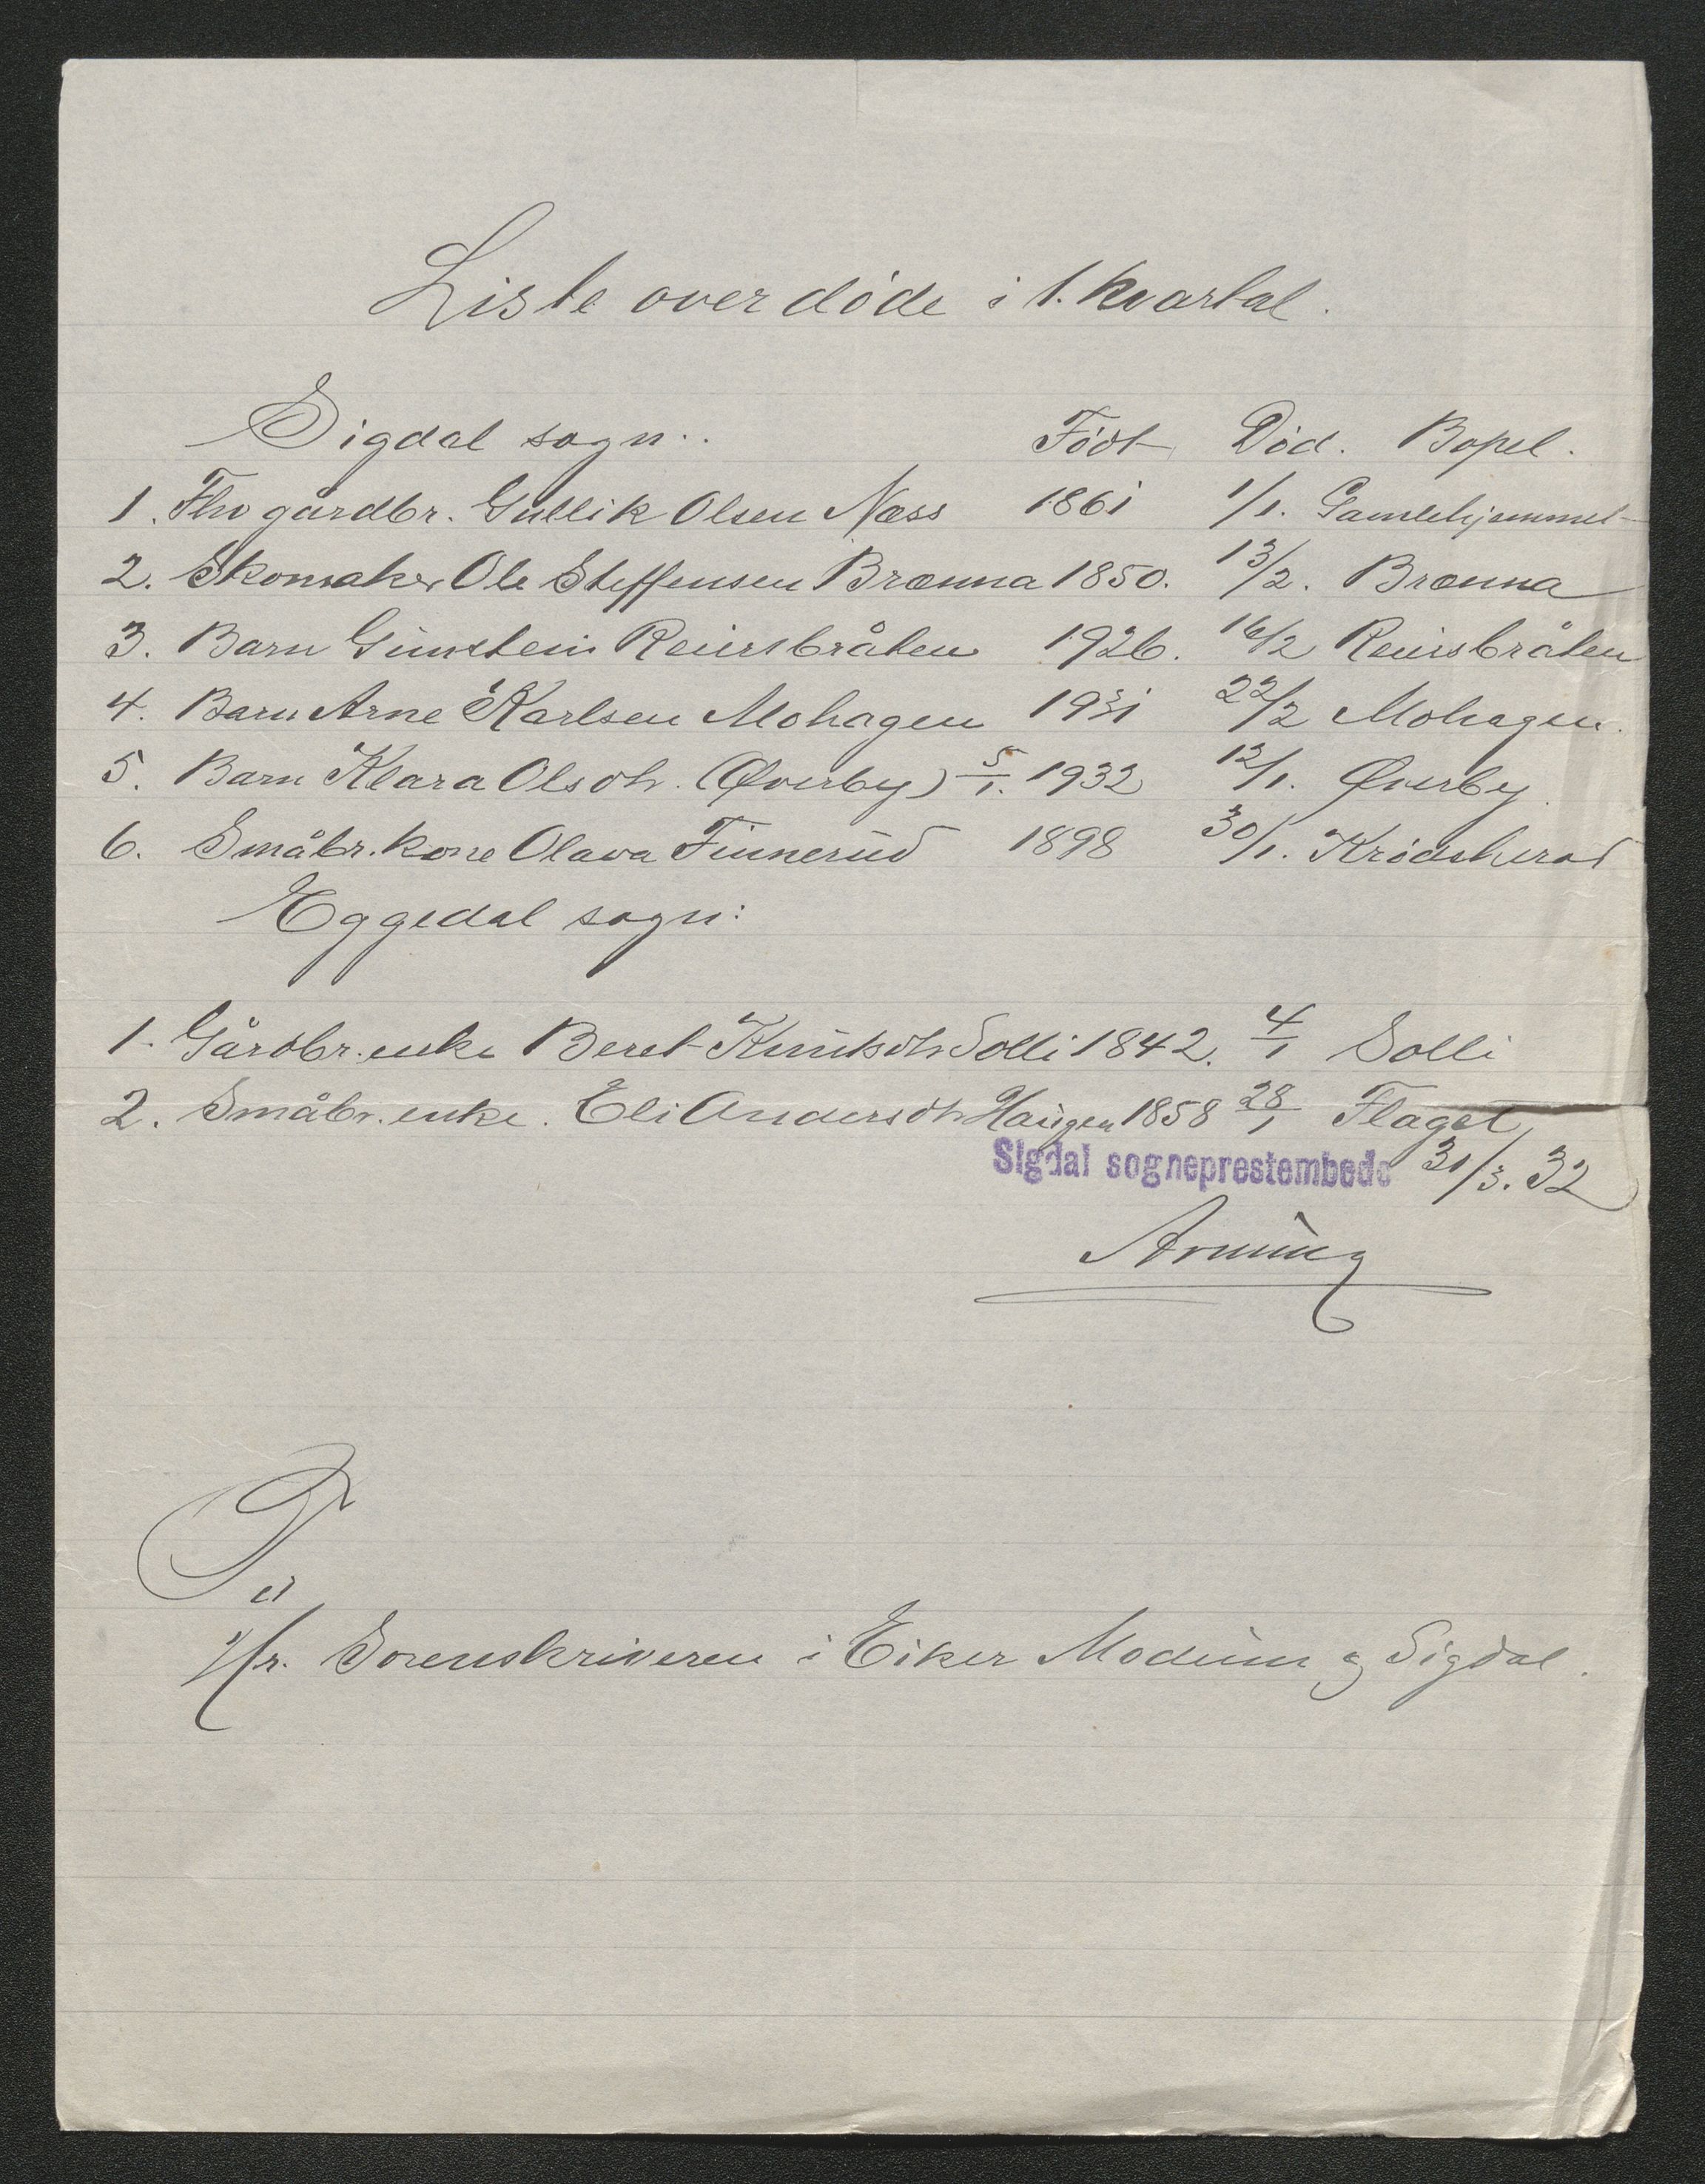 Liste over døde i 1. kvartal.
Sigdal sogn: Født Død. Bopel.
1. Fhv gårdbr. Gullik Olsen Næss 1861 1/1. Gamlehjemmet
2. Skomaker Ole Steffensen Brænna 1850. 13/2. Brænna
3. Barn Gunstein Reiersbråten 1926. 16/2 Reiersbråten
4. Barn Arne Karlsen Mohagen 1931 22/2 Mohagen.
5. Barn Klara Olsdtr. (Øverby) 5/1. 1932 12/1. Øverby
6. Småbr. kone Olava Finnerud 1898 30/1. Krødsherad
Eggedal sogn:
1. Gårdbr. enke Beret Knutsdtr Solli 1842. 4/1 Solli
2. Småbr. enke. Eli Andersdtr Haugen 1858 28/1 Flaget
Sigdal sogneprestembede 31/3. 32
Til
Hr. Sorenskriveren i Eiker Modum og Sigdal.